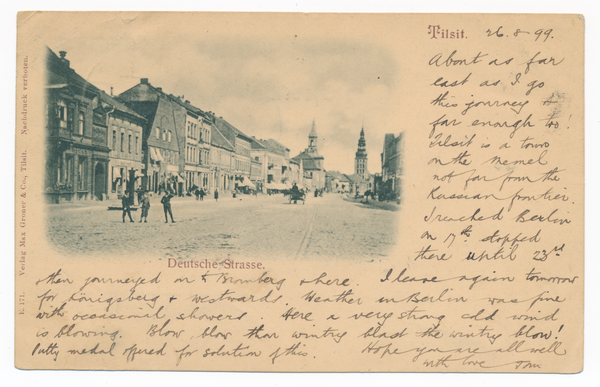 Tilsit. 26.8.99.
About as far
east as I go
this journey &
far enough too!
Tilsit is a town
on the Memel
not far from the
Russian frontier.
I reached Berlin
on 17th stopped
there until 23rd
Deutsche Strasse.
then journeyed on to Bromberg & here. I leave again tomorrow
for Königsberg & westwards. Weather in Berlin was fine
with occasional showers. Here a very strong cold wind
is blowing. Blow, blow thou wintry blast the wintry blow!
Putty medal offered for solution of this. Hope you are all well
with love Tom
E. 171. Verlag Max Groner & Co., Tilsit. Nachdruck verboten.